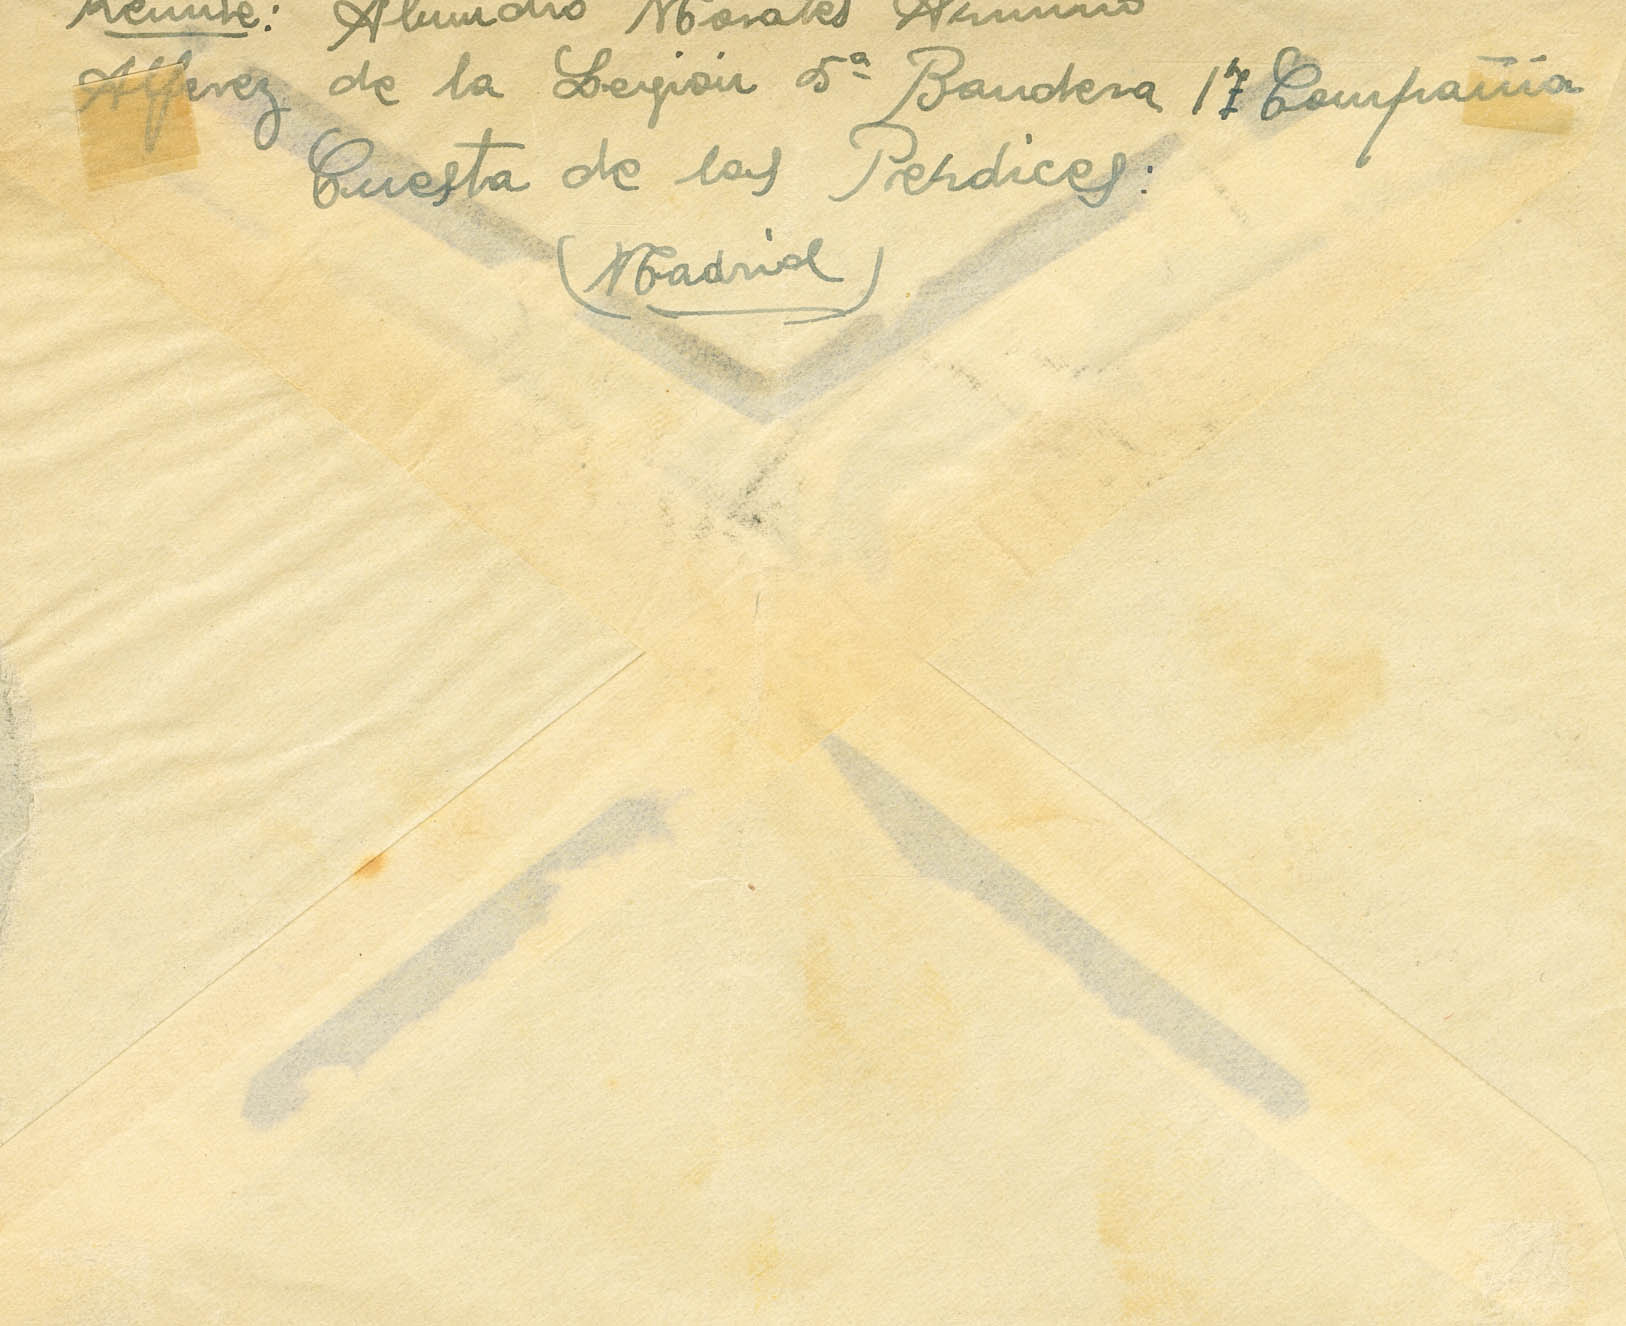 Remite: Alejandro Morales
Alferez de la Legión 5ª Bandera 17 Compañia
Cuesta de las Perdices:
(Madrid)